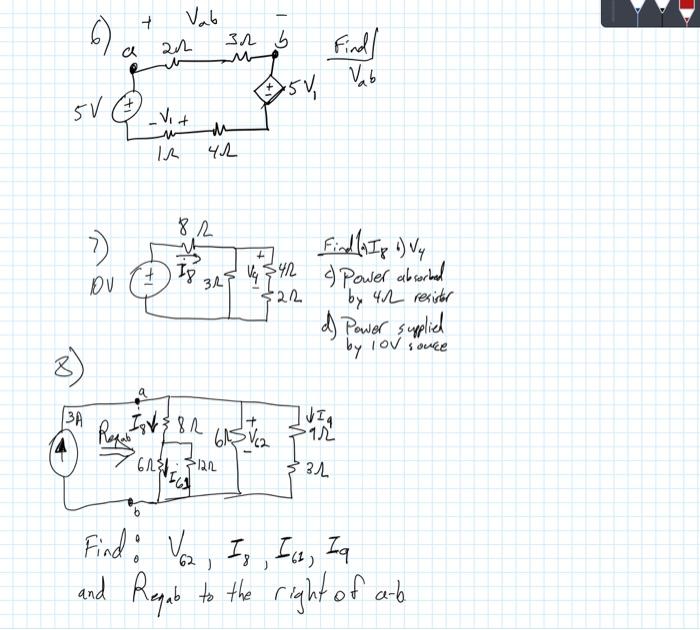 6)
+ Vab -
a 2Ω 3Ω b
5V
+
-
5V₁
- V₁ +
1Ω 4Ω
Find
Vab
7)
8Ω
10V
+
-
I8
3Ω
+
V4
-
4Ω
2Ω
Find a) I8 b) V4
c) Power absorbed
by 4Ω resistor
d) Power supplied
by 10V source
8)
a
3A
Reqab
I8
8Ω
6Ω
I61
12Ω
6Ω
+
V62
-
I9
9Ω
3Ω
b
Find: V62, I8, I61, I9
and Reqab to the right of a-b